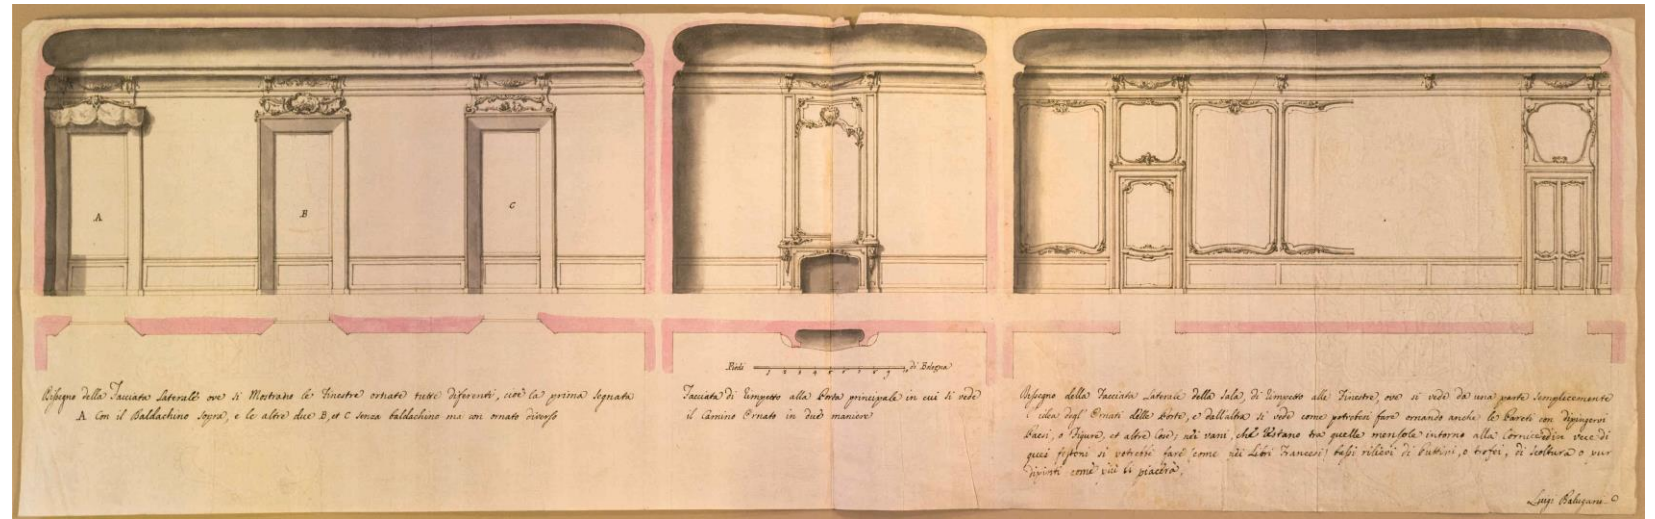 A
B
C
Piedi 1 2 3 4 5 6 7 8 9 10 di Bologna
Dissegno della Facciata Laterale ove si Mostrano le Finestre ornate tutte diferenti, cioè la prima segnata
A Con il Baldachino sopra, e le altre due B, et C senza baldachino ma con ornato diverso
Facciata di rimpetto alla Porta principale in cui si vede
il Camino Ornato in due maniere
Dissegno della Facciata Laterale della Sala, di rimpetto alle Finestre, ove si vede da una parte semplicemente
l'idea degl'Ornati delle Porte, e dall'altra si vede come potrebesi fare ornando anche le Pareti con dipingervi
Paesi, o Figure, et altre cose; nei vani, che restano tra quelle mensole intorno alla Cornice ed in vece di
quei festoni si potressi fare come nei Libri Francesi bassi rilievi di puttini, o trofei, di scoltura o pur
dipinti come più li piacerà,
Luigi Balugani